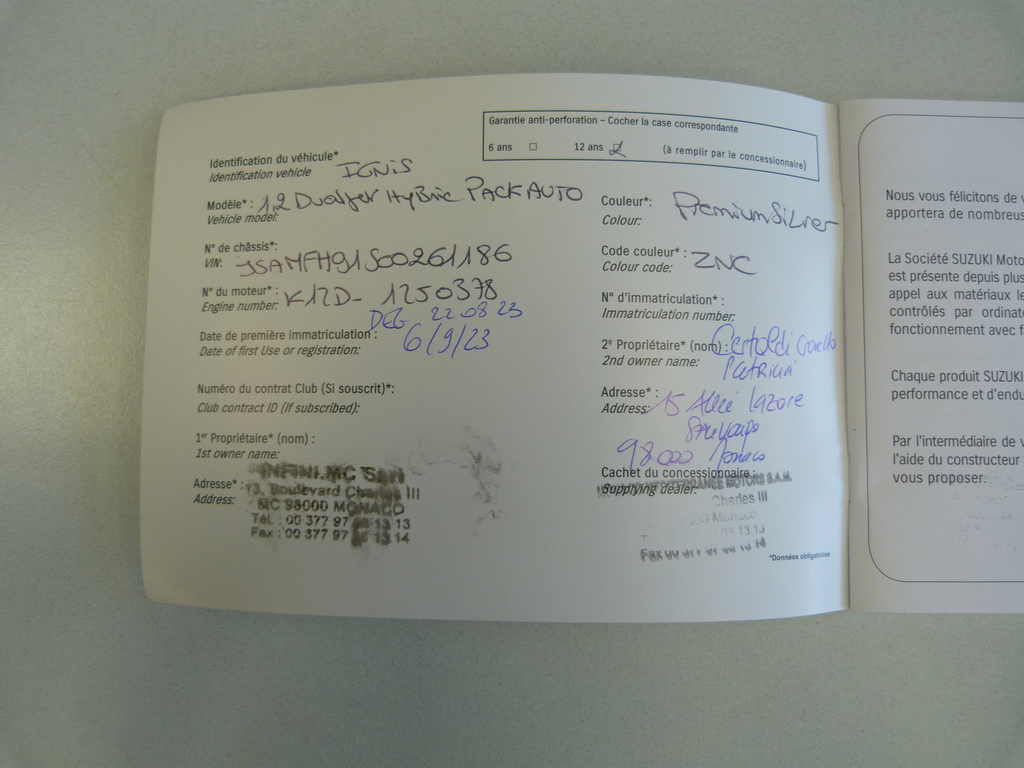 Garantie anti-perforation – Cocher la case correspondante
6 ans ☐ 12 ans ☑ (à remplir par le concessionnaire)
Identification du véhicule* IGNIS
Identification vehicle
Modèle* : 1,2 Dualjet HyBride PACK AUTO
Vehicle model:
N° de châssis*:
VIN: JSAMFH91S00261186
N° du moteur* : K12D- 1250378
Engine number:
DEG 22 08 23
Date de première immatriculation : 6/9/23
Date of first Use or registration:
Numéro du contrat Club (Si souscrit)*:
Club contract ID (If subscribed):
1er Propriétaire* (nom) :
1st owner name:
INFINI.MC SAM
Adresse* : 13, Boulevard Charles III
Address: MC 98000 MONACO
Tél. : 00 377 97 98 13 13
Fax : 00 377 97 98 13 14
Couleur*: Premium Silver
Colour:
Code couleur* : ZNC
Colour code:
N° d'immatriculation* :
Immatriculation number:
2e Propriétaire* (nom) :
2nd owner name:
Adresse* :
Address: 15 Allée Lazare
98000 Monaco
Cachet du concessionnaire :
MOTORS S.A.M.
Supplying dealer:
Charles III
Monaco
13 13
Fax
*Données obligatoires
Nous vous félicitons de
apportera de nombreus
La Société SUZUKI Moto
est présente depuis plus
appel aux matériaux le
contrôlés par ordinate
fonctionnement avec f
Chaque produit SUZUKI
performance et d'endu
Par l'intermédiaire de v
l'aide du constructeur
vous proposer.